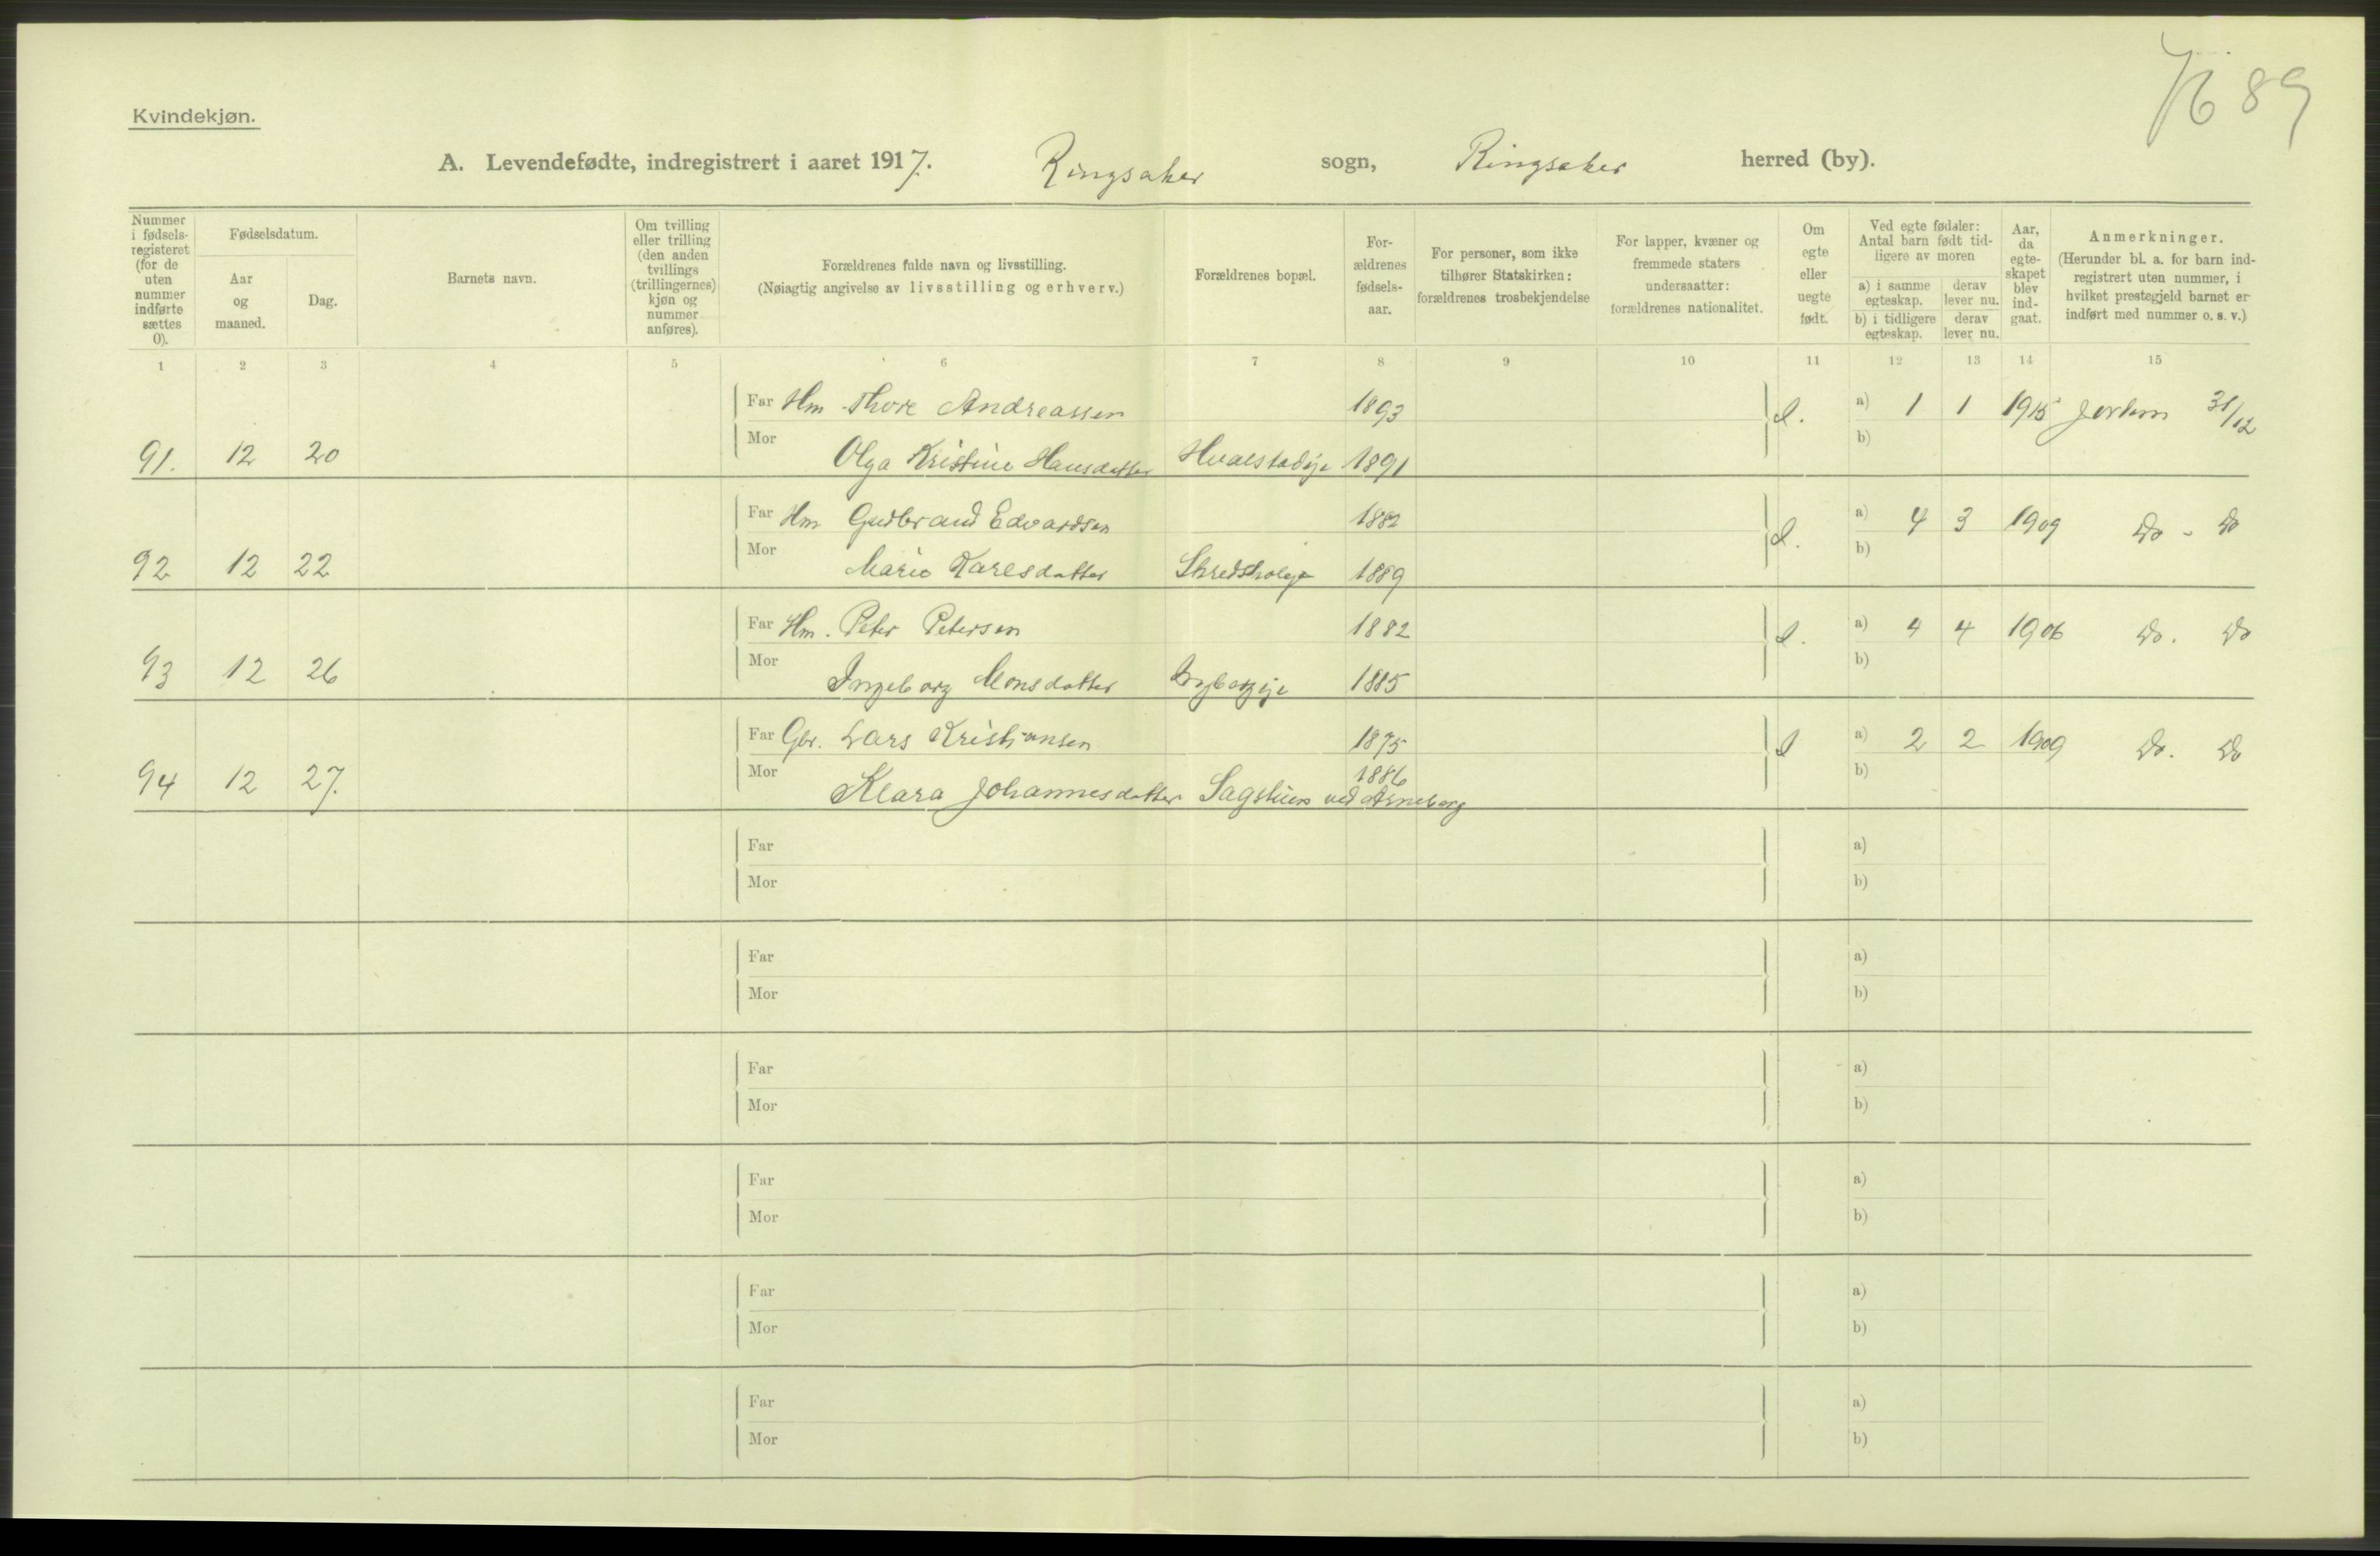 89
Kvindekjøn.
A. Levendefødte, indregistrert i aaret 1917. Ringsaker sogn, Ringsaker herred (by).
Nummer i fødselsregisteret (for de uten nummer indførte sættes 0).
Fødselsdatum.
Aar og maaned.
Dag.
Barnets navn.
Om tvilling eller trilling (den anden tvillings (trillingernes) kjøn og nummer anføres).
Forældrenes fulde navn og livsstilling.
(Nøiagtig angivelse av livsstilling og erhverv.)
Forældrenes bopæl.
Forældrenes fødselsaar.
For personer, som ikke tilhører Statskirken: forældrenes trosbekjendelse
For lapper, kvæner og fremmede staters undersaatter: forældrenes nationalitet.
Om egte eller uegte født.
Ved egte fødsler: Antal barn født tidligere av moren
a) i samme egteskap. derav lever nu.
b) i tidligere egteskap. derav lever nu.
Aar, da egteskapet blev indgaat.
Anmerkninger.
(Herunder bl. a. for barn indregistrert uten nummer, i hvilket prestegjeld barnet er indført med nummer o. s. v.)
1 2 3 4 5 6 7 8 9 10 11 12 13 14 15
Far Hm. Thore Andreassen 1893 a) 1 1 1915 Jordem 31/12
91. 12 20 Mor Olga Kristine Hansdatter 1891 b)
Far Hm Gudbrand Edvardsen 1882 a) 4 3 1909 Do - Do
92 12 22 Mor Marie Karlsdatter 1889 b)
Far Hm. Peter Petersen 1882 a) 4 4 1906 Do. Do
93 12 26 Mor Ingeborg Monsdatter 1885 b)
Far Gbr. Lars Kristiansen 1875 a) 2 2 1909 Do. Do
94 12 27. Mor Klara Johannesdatter Sagstuen ved Arneberg 1886 b)
Far a)
Mor b)
Far a)
Mor b)
Far a)
Mor b)
Far a)
Mor b)
Far a)
Mor b)
Far a)
Mor b)